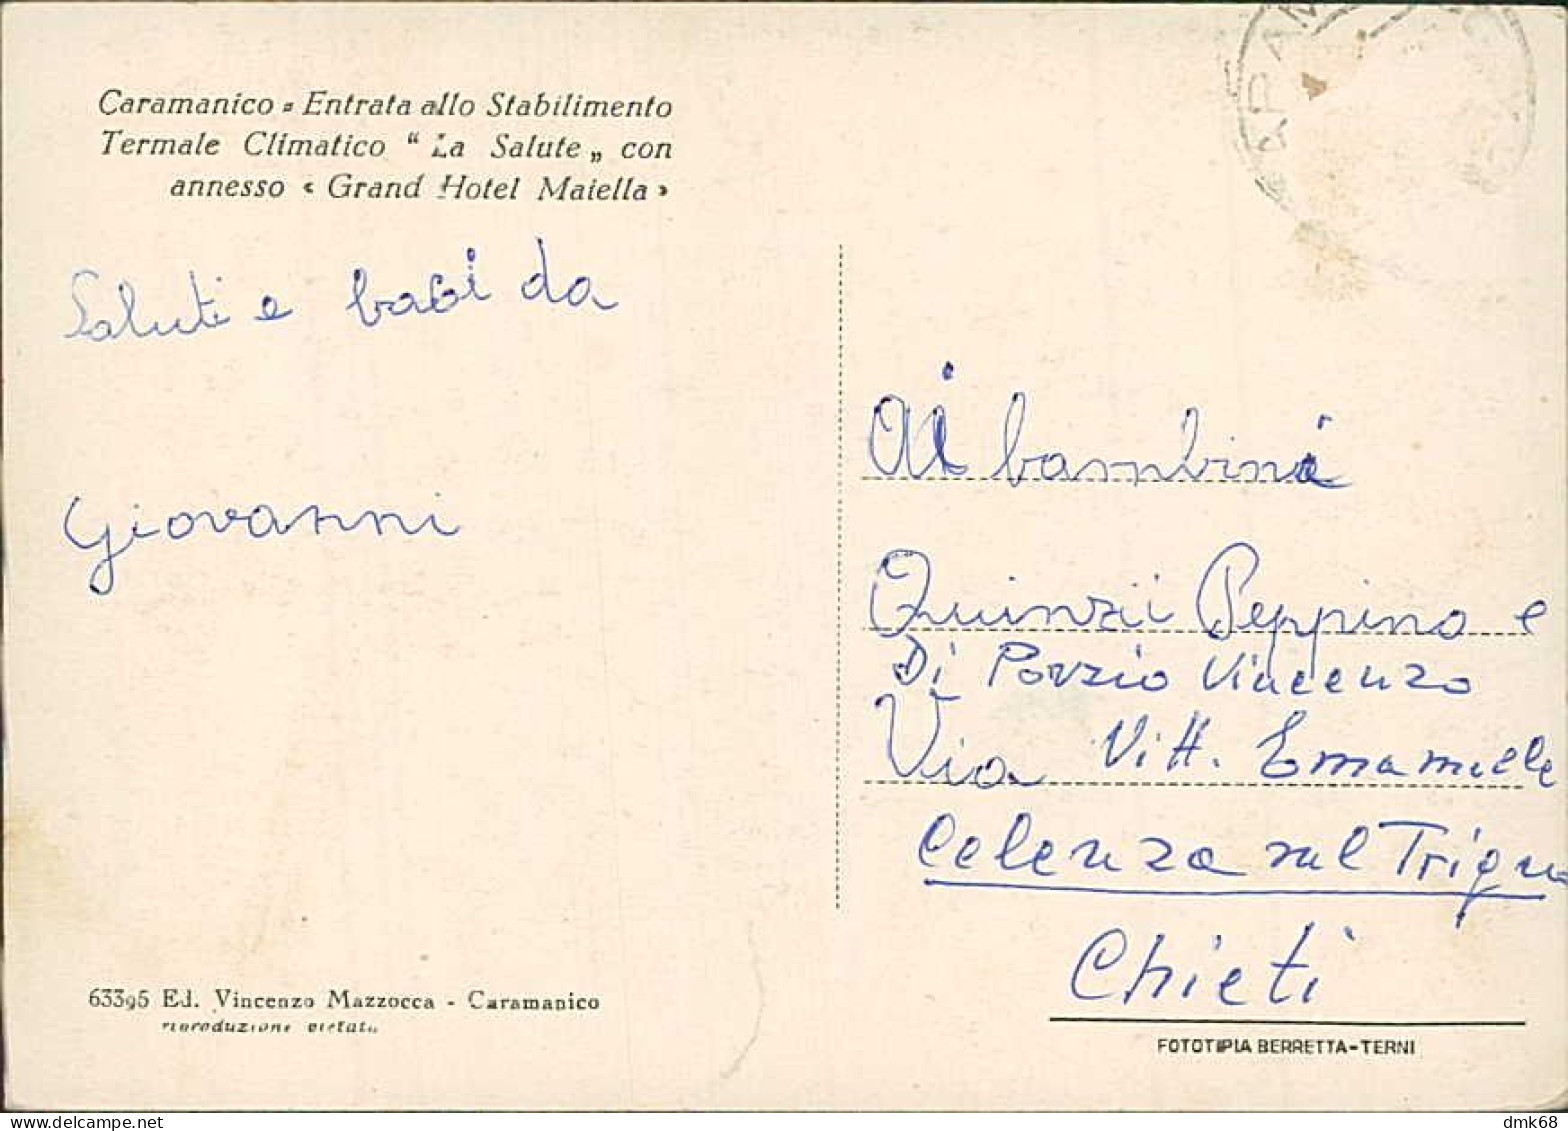 Caramanico = Entrata allo Stabilimento
Termale Climatico “ La Salute „ con
annesso « Grand Hotel Maiella »
Saluti e baci da
Giovanni
63395 Ed. Vincenzo Mazzocca - Caramanico
riproduzione vietata
CARAM
Ai bambini
Quinzii Peppino e
Di Porzio Vincenzo
Via Vitt. Emamuele
Celenza sul Trigno
Chieti
FOTOTIPIA BERRETTA-TERNI
www.delcampe.net
dmk68